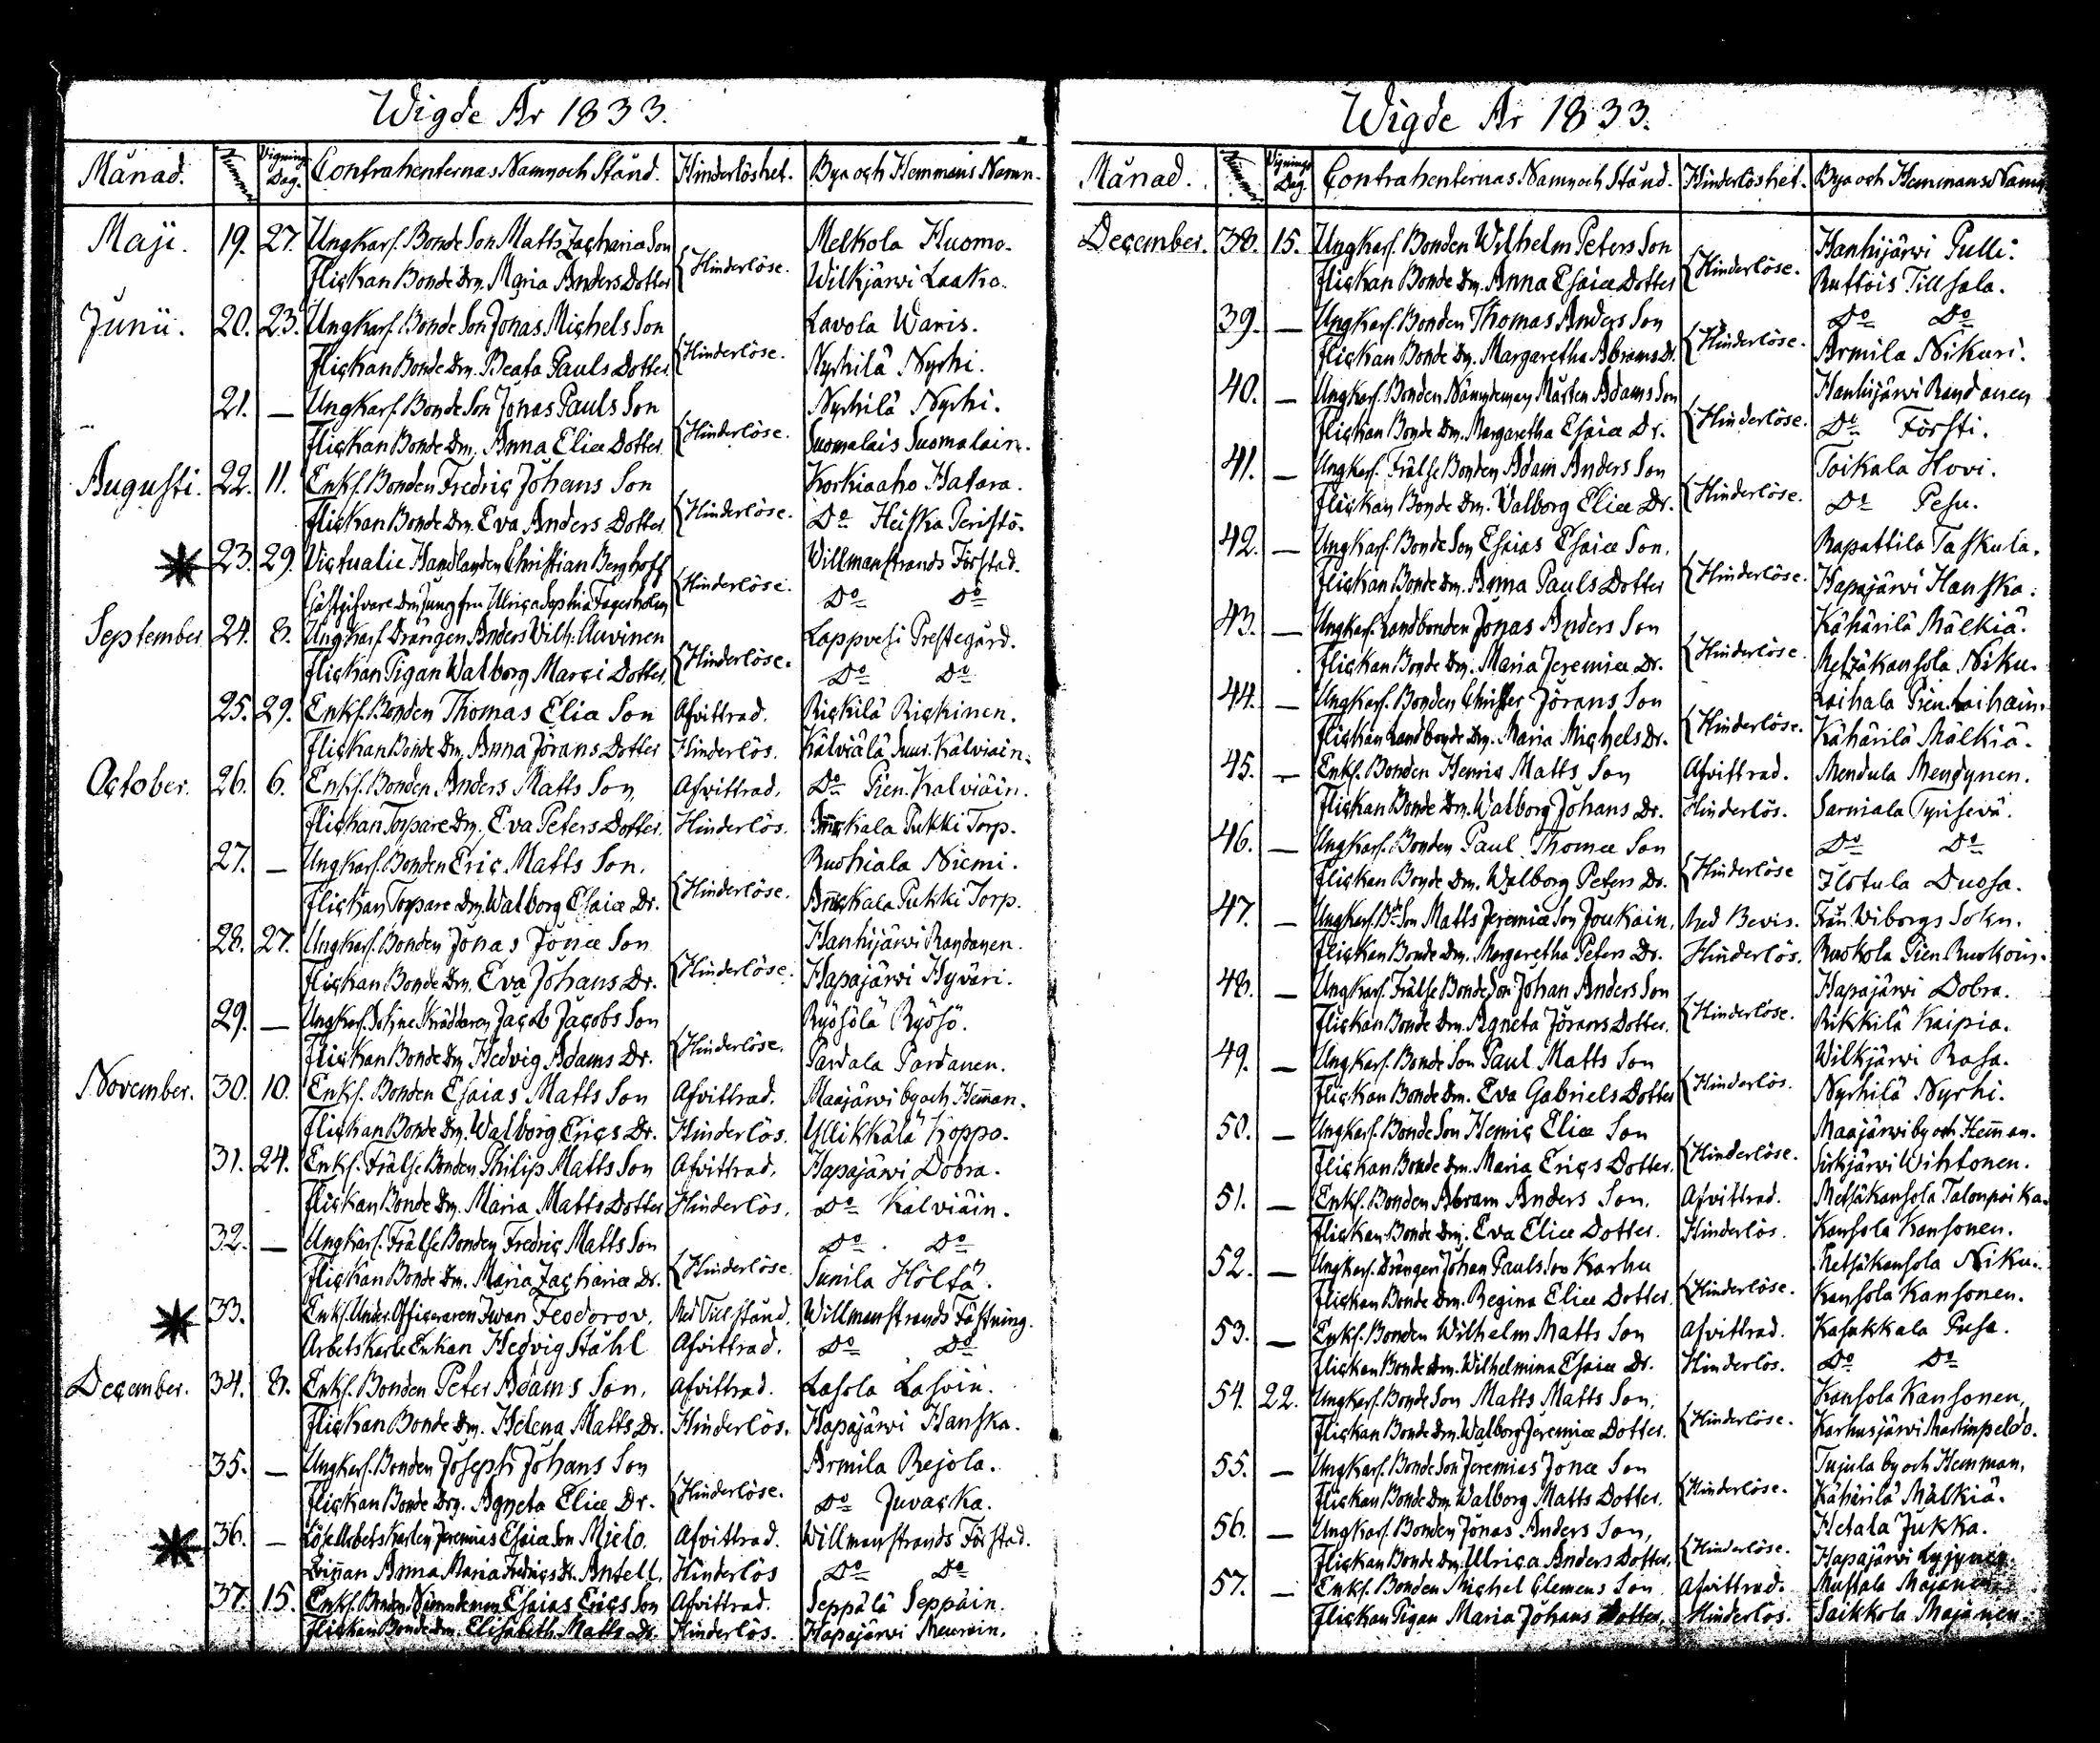 Wigde År 1833.
Månad. Nummer Vignings Dag. Contrahenternas Namn och Stånd. Hinderlöshet. Bya och Hemmans Namn.
Maji. 19. 27. Ungkarl. Bonde Son Matts Zacharia Son {Hinderlöse. Melkola Huomo.
Flickan Bonde Dm. Maria Anders Dotter Wilkjärwi Laako.
Junii. 20. 23. Ungkarl. Bonde Son Jonas Michels Son {Hinderlöse. Lavola Waris.
Flickan Bonde Dm. Beata Pauls Dotter Nyrhilä Nyrhi.
21. — Ungkarl. Bonde Son Jonas Pauls Son {Hinderlöse. Nyrhilä Nyrhi.
Flickan Bonde Dm. Anna Eliæ Dotter Suomalais Suomalain.
Augusti. 22. 11. Enkl. Bonden Fredric Johans Son {Hinderlöse. Korkiaaho Hatara.
Flickan Bonde Dm. Eva Anders Dotter Do Heiska Peristö.
23. 29. Victualie Handlanden Christian Berghoff {Hinderlöse. Willmanstrands Förstad.
Gästgifvare Dm Jungfru Ulrica Sophia Fagerholm Do Do
September 24. 8. Ungkarl. Drängen Anders Vilh. Auvinen {Hinderlöse. Lappvesi Prestegård.
Flickan Pigan Walborg Marci Dotter. Do Do
25. 29. Enkl. Bonden Thomas Eliæ Son Afvittrad. Rickilä Rickinen.
Flickan Bonde Dm. Anna Jörans Dotter Hinderlös. Kälviälä Suur. Kälviäin.
October. 26. 6. Enkl. Bonden Anders Matts Son, Afvittrad. Do Pien. Kalviäin.
Flickan Torpare Dm. Eva Peters Dotter. Hinderlös. Pukki Torp.
27. — Ungkarl. Bonden Eric Matts Son. {Hinderlöse. Ruohiala Niemi.
Flickan Torpare Dm. Walborg Esaiæ Dr. Pukki Torp.
28. 27. Ungkarl. Bonden Jonas Jonæ Son {Hinderlöse. Hanhijärvi Randanen.
Flickan Bonde Dm. Eva Johans Dr. Hapajärvi Hyväri.
29. — Ungkarl. Sokne Skräddaren Jacob Jacobs Son {Hinderlöse. Ryösölä Ryösö.
Flickan Bonde Dm Hedvig Adams Dr. Pardala Pardanen.
November. 30. 10. Enkl. Bonden Esaias Matts Son Afvittrad. Maajärwi by och Hem̄an.
Flickan Bonde Dm. Walborg Erics Dr. Hinderlös. Yllikkälä Koppo.
31. 24. Enkl. Frälse Bonden Philip Matts Son Afvittrad. Hapajärwi Dobra.
Flickan Bonde Dm. Maria Matts Dotter Hinderlös. Do Kalviäin.
32. — Ungkarl. Frälse Bonden Fredric Matts Son {Hinderlöse. Do Do
Flickan Bonde Dm. Maria Zachariæ Dr. Sunila Höltä.
33. Enkl. Under Officeraren Iwan Feodorov. Med Tillstånd. Willmanstrands Fästning.
Arbets Karls Enkan Hedvig Ståhl Afvittrad. Do Do
December. 34. 8. Enkl. Bonden Peter Adams Son. Afvittrad. Lasola Lasoin.
Flickan Bonde Dm. Helena Matts Dr. Hinderlös. Hapajärwi Hanska.
35. — Ungkarl. Bonden Joseph Johans Son {Hinderlöse. Armila Rejola.
Flickan Bonde Dm. Agneta Eliæ Dr. Do Juvacka.
36. — Löse Arbets Karlen Jeremias Esaiæ Son Mielo. Afvittrad. Willmanstrands Förstad.
Anna Maria Fredrics Dr. Antell. Hinderlös Do Do
37. 15. Enkl. Bonden Nämndeman Esaias Erics Son Afvittrad. Seppälä Seppäin.
Flickan Bonde Dm. Elisabeth Matts Dr. Hinderlös. Hapajärwi Meurain.
Wigde År 1833.
Månad. Nummer Vignings Dag. Contrahenternas Namn och Stånd. Hinderlöshet. Bya och Hemmans Namn
December. 38. 15. Ungkarl. Bonden Wilhelm Peters Son {Hinderlöse. Hanhijärwi Pulli.
Flickan Bonde Dm. Anna Esaiæ Dotter Ruttois Tillsala.
39. — Ungkarl. Bonden Thomas Anders Son {Hinderlöse. Do Do
Flickan Bonde Dm. Margaretha Abrams Dr. Armila Nikuri.
40. — Ungkarl. Bonden Nämndeman Mårten Adams Son {Hinderlöse. Hanhijärwi Randanen
Flickan Bonde Dm. Margaretha Esaiæ Dr. Do Försti.
41. — Ungkarl. Frälse Bonden Adam Anders Son {Hinderlöse. Toikala Hovi.
Flickan Bonde Dm. Valborg Eliæ Dr. Do Pesu.
42. — Ungkarl. Bonde Son Esaias Esaiæ Son. {Hinderlöse. Rapattila Taskula.
Flickan Bonde Dm. Anna Pauls Dotter Hapajärwi Hanska.
43. — Ungkarl. Landbonden Jonas Anders Son {Hinderlöse. Kähärilä Mälkiä.
Flickan Bonde Dm. Maria Jeremiæ Dr. Metzäkansola Niku.
44. — Ungkarl. Bonden Christer Jörans Son {Hinderlöse. Laihala Pien. Laihain.
Flickan Landbonde Dm. Maria Michels Dr. Kähärilä Mälkiä.
45. — Enkl. Bonden Henric Matts Son Afvittrad. Mendula Mendynen.
Flickan Bonde Dm. Walborg Johans Dr. Hinderlös. Sarniala Tyrisevä.
46. — Ungkarl. Bonden Paul Thomæ Son {Hinderlöse Do Do
Flickan Bonde Dm. Walborg Peters Dr. Ilotula Duosa.
47. — Ungkarl. Bde Son Matts Jeremiæ Son Joukain. Med Bevis. Från Wiborgs Sokn.
Flickan Bonde Dm. Margaretha Peters Dr. Hinderlös. Ruokola Pien Ruokoin.
48. — Ungkarl. Frälse Bonde Son Johan Anders Son {Hinderlöse. Hapajärwi Dobra.
Flickan Bonde Dm. Agneta Jörans Dotter. Rikkilä Kaipia.
49. — Ungkarl. Bonde Son Paul Matts Son {Hinderlös. Wilkjärwi Rasa.
Flickan Bonde Dm. Eva Gabriels Dotter Nyrhilä Nyrhi.
50. — Ungkarl. Bonde Son Henric Eliæ Son {Hinderlöse. Maajärwi by och Hem̄an.
Flickan Bonde Dm. Maria Erics Dotter. Sirkjärwi Wihtonen.
51. — Enkl. Bonden Abram Anders Son. Afvittrad. Metsäkansola Talonpoika.
Flickan Bonde Dm. Eva Eliæ Dotter. Hinderlös. Kansola Kansonen.
52. — Ungkarl. Drängen Johan Pauls Son Karhu {Hinderlöse. Metsäkansola Niku.
Flickan Bonde Dm. Regina Eliæ Dotter. Kansola Kansonen.
53. — Enkl. Bonden Wilhelm Matts Son Afvittrad. Kasukkala Pusa.
Flickan Bonde Dm. Wilhelmina Esaiæ Dr. Hinderlös. Do Do
54. 22. Ungkarl. Bonde Son Matts Matts Son. {Hinderlöse. Kansola Kansonen,
Flickan Bonde Dm. Walborg Jeremiæ Dotter. Karhusjärwi Martinpeldo.
55. — Ungkarl. Bonde Son Jeremias Jonæ Son {Hinderlöse. Tujula by och Hemman.
Flickan Bonde Dm. Walborg Matts Dotter. Kähärilä Mälkiä.
56. — Ungkarl. Bonden Jonas Anders Son, {Hinderlöse. Hetala Jukka.
Flickan Bonde Dm. Ulrica Anders Dotter. Hapajärwi
57. — Enkl. Bonden Michel Clemens Son Afvittrad. Mustola Majanen
Flickan Pigan Maria Johans Dotter. Hinderlös. Saikkola Majanen